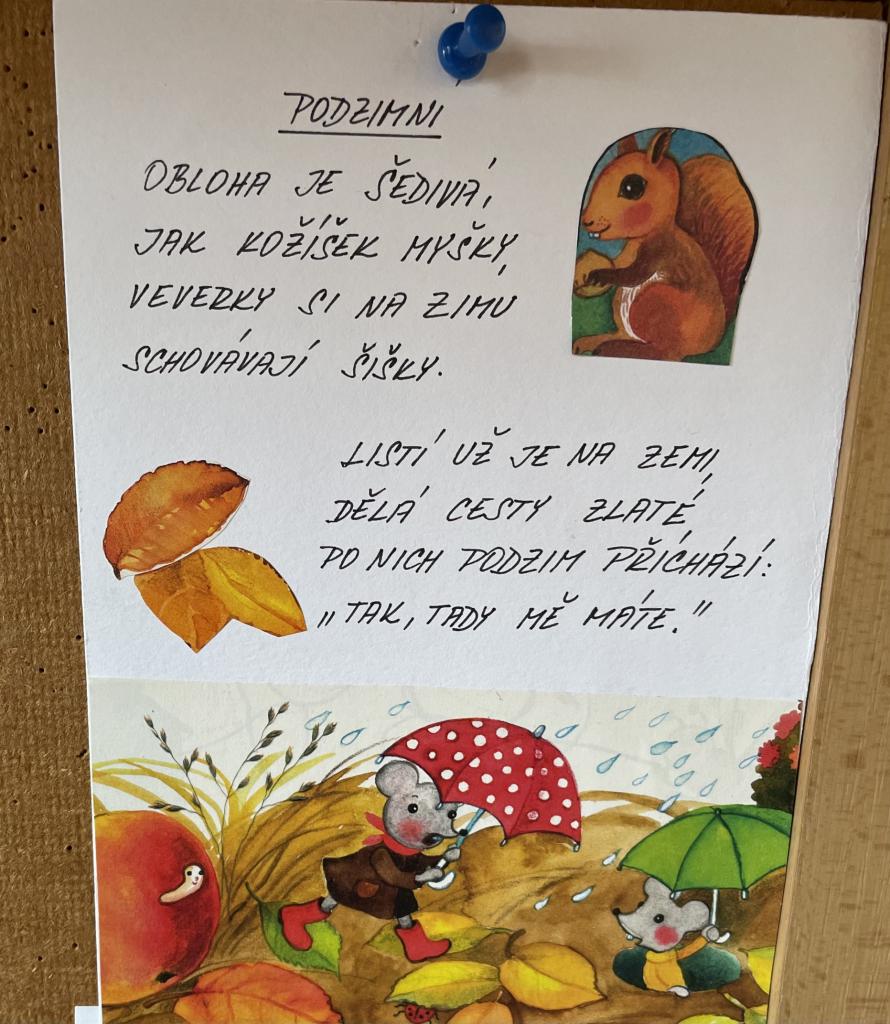 PODZIMNI
OBLOHA JE ŠEDIVÁ,
JAK KOŽÍŠEK MYŠKY,
VEVERKY SI NA ZIMU
SCHOVÁVAJÍ ŠIŠKY.
LISTÍ UŽ JE NA ZEMI,
DĚLÁ CESTY ZLATÉ,
PO NICH PODZIM PŘÍCHÁZÍ:
„TAK, TADY MĚ MÁTE."